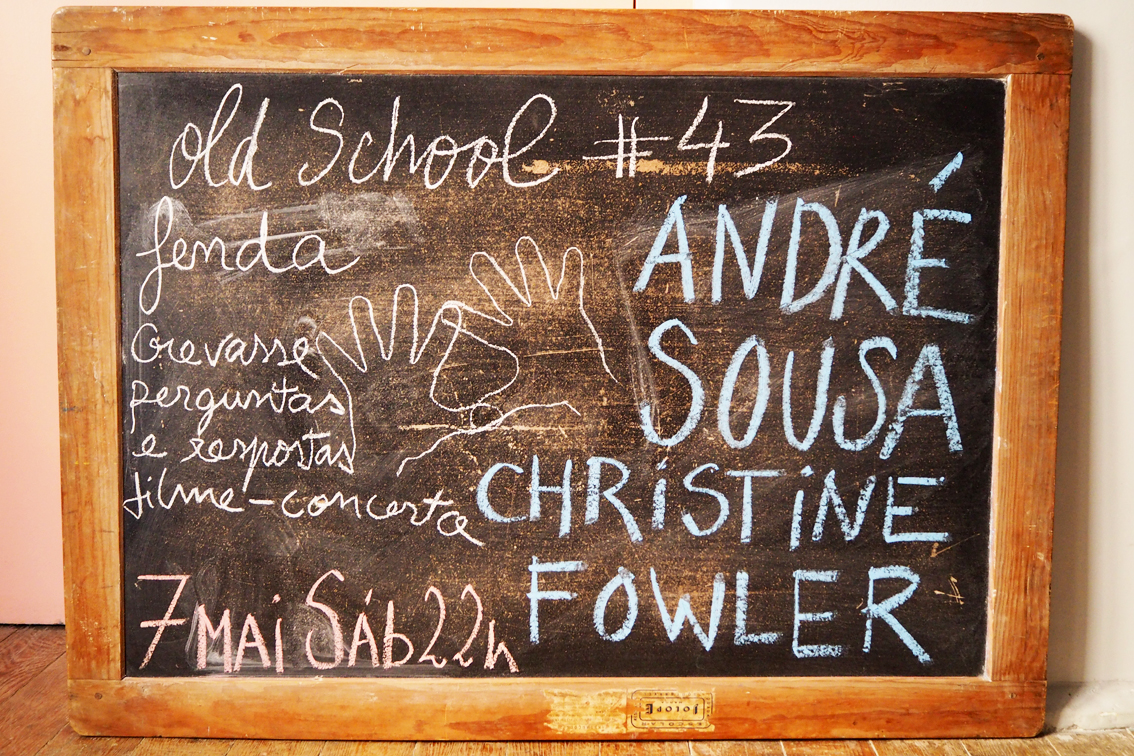 old School #43
fenda
Crevasse
perguntas
e respostas
filme-concerta
7 MAi SÁb 22h
ANDRÉ
SOUSA
CHRiSTiNE
FOWLER